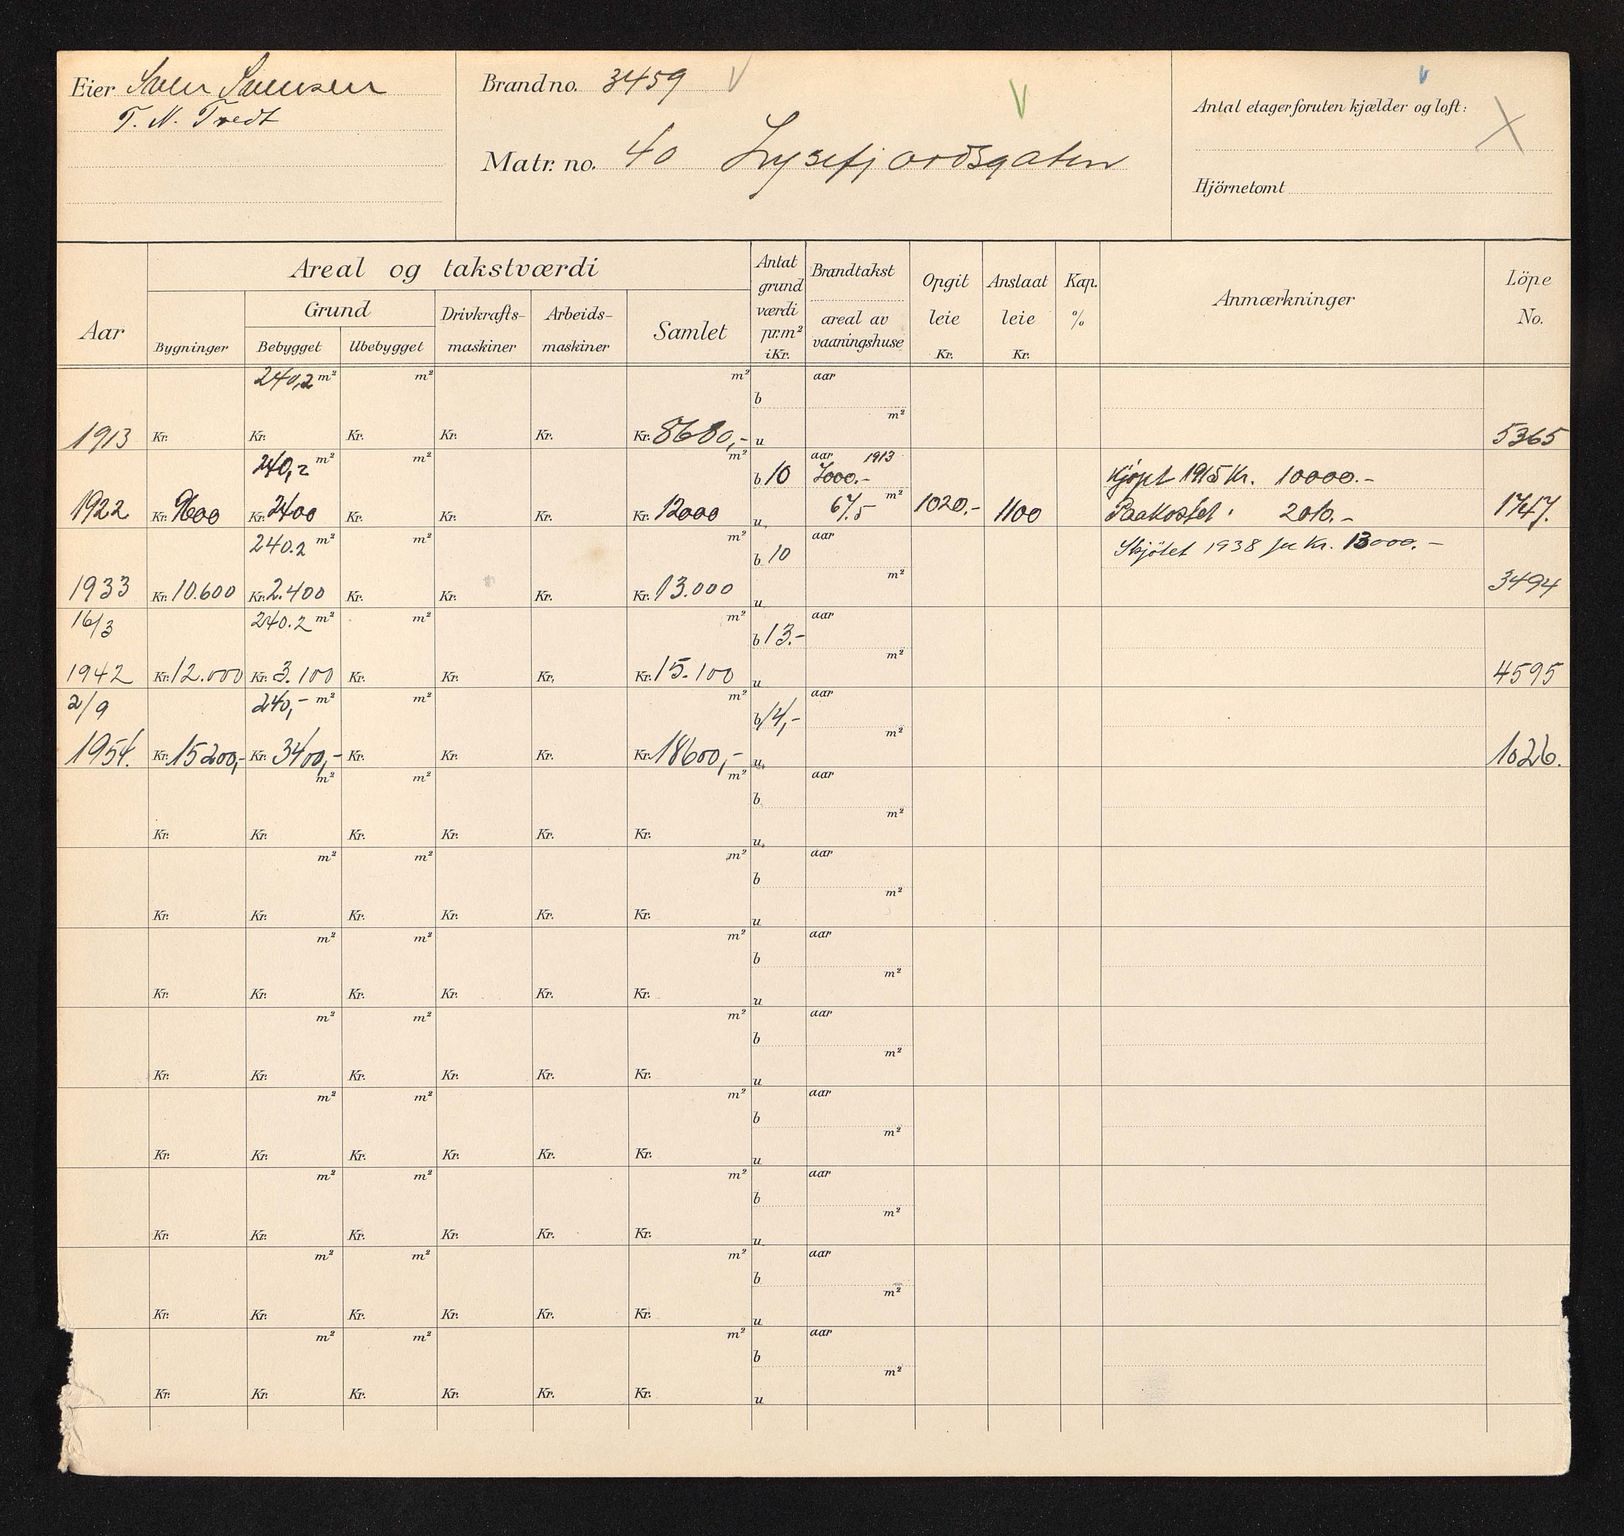 Eier Sven Svensen
T. N. Tvedt
Brand no. 3459
Matr. no. 40 Lysefjordsgaten
Antal etager foruten kjælder og loft:
Hjörnetomt
Aar
Areal og takstværdi
Bygninger
Grund
Bebygget Ubebygget
Drivkrafts-maskiner
Arbeids-maskiner
Samlet
Antat grund værdi pr.m² i Kr.
Brandtakst
areal av vaaningshuse
Opgit leie Kr.
Anslaat leie Kr.
Kap. %
Anmærkninger
Löpe No.
240,2 m² m² m² aar
b m²
1913 Kr. Kr. Kr. Kr. Kr. Kr. 8680,- u 5365
240,2 m² m² m² aar 1913
b 10 7000.- Kjøpt 1915 Kr. 10000.-
1922 Kr. 9600 Kr. 2400 Kr. Kr. Kr. Kr. 12000 u 67.5 m² 1020.- 1100 Paakostet 2010.- 1747.
240.2 m² m² m² aar Skjötet 1938 for Kr. 13000.-
b 10 m²
1933 Kr. 10.600 Kr. 2.400 Kr. Kr. Kr. Kr. 13.000 u 3494
16/3 240.2 m² m² m² aar
b 13.- m²
1942 Kr. 12.000 Kr. 3.100 Kr. Kr. Kr. Kr. 15.100 u 4595
2/9 240,- m² m² m² aar
b 14,- m²
1954. Kr. 15200,- Kr. 3400,- Kr. Kr. Kr. Kr. 18600,- u 1026.
m² m² m² aar
b m²
Kr. Kr. Kr. Kr. Kr. Kr. u
m² m² m² aar
b m²
Kr. Kr. Kr. Kr. Kr. Kr. u
m² m² m² aar
b m²
Kr. Kr. Kr. Kr. Kr. Kr. u
m² m² m² aar
b m²
Kr. Kr. Kr. Kr. Kr. Kr. u
m² m² m² aar
b m²
Kr. Kr. Kr. Kr. Kr. Kr. u
m² m² m² aar
b m²
Kr. Kr. Kr. Kr. Kr. Kr. u
m² m² m² aar
b m²
Kr. Kr. Kr. Kr. Kr. Kr. u
m² m² m² aar
b m²
Kr. Kr. Kr. Kr. Kr. Kr. u